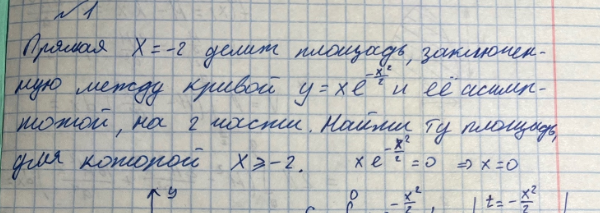 №1
Прямая x=-2 делит площадь, заключен-
ную между кривой y=xe^{-x²/2} и её асимп-
тотой, на 2 части. Найти ту площадь,
для которой x⩾-2. xe^{-x²/2}=0 ⇒ x=0
↑y 0 -x²/2 | t=-x²/2 |